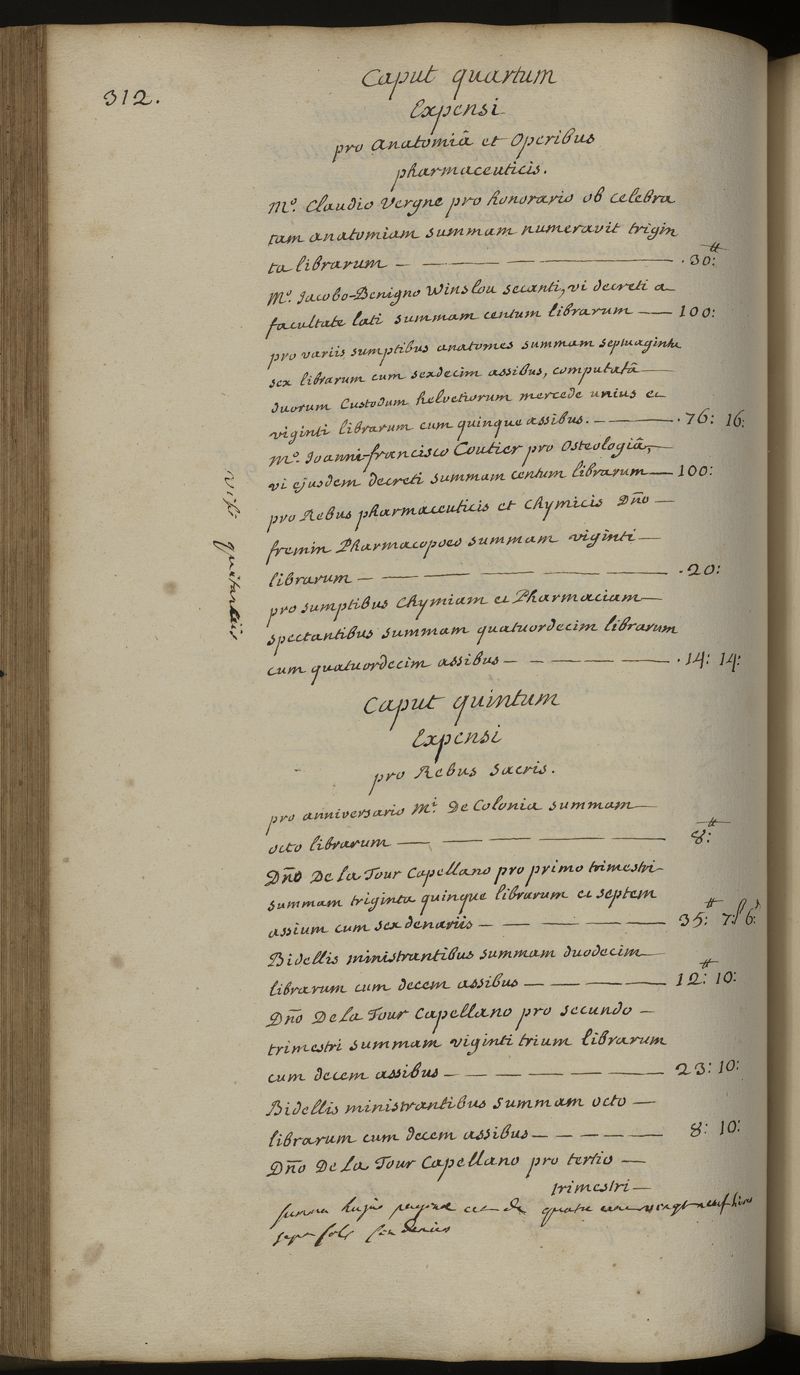 312.
Caput quartum
Expensi
pro Anatomiâ et Operibus
pharmaceuticis.
M.º Claudio Vergne pro honorario ob celebra
tam anatomiam summam numeravit trigin
ta librarum — — — — — .30:tt
M.º Jacobo-Benigno Winslou secanti, vi decreti a
facultate lati summam centum librarum — 100:
pro variis sumptibus anatomes summam septuaginta
sex librarum cum sexdecim assibus, computatâ —
duorum Custodum helvetiorum mercede unius et
viginti librarum cum quinque assibus. — — .76: 16:
M.º Joanni-francisco Coutier pro Osteologiâ, —
vi ejusdem decreti summam centum librarum — 100:
pro Rebus pharmaceuticis et Chymicis Dño —
fremin Pharmacopoeo summam viginti —
librarum — — — — — — .20:
pro sumptibus Chymiam et Pharmaciam —
spectantibus summam quatuordecim librarum
cum quatuordecim assibus — — — — .14: 14:
Visis quitantiis
Caput quintum
Expensi
pro Rebus Sacris.
pro anniversario M.i De Colonia summam —
octo librarum — — — — — 8:tt
Dño De la Tour Capellano pro primo trimestri —
summam triginta quinque librarum et septem
assium cum sex denariis — — — — 35:tt 7:s 6:d
Bidellis ministrantibus summam duodecim —
librarum cum decem assibus — — — — 12:tt 10:
Dño De la Tour Capellano pro secundo —
trimestri summam viginti trium librarum
cum decem assibus — — — — — 23: 10:
Bidellis ministrantibus summam octo —
librarum cum decem assibus — — — — 8: 10:
Dño De la Tour Capellano pro tertio —
trimestri —
summa hujus paginae est de quatre cent vingt neuf livres
sept sols six deniers